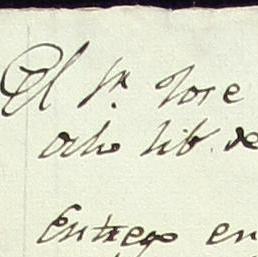 El Sr. Jose
ocho lib. de
Entrego en